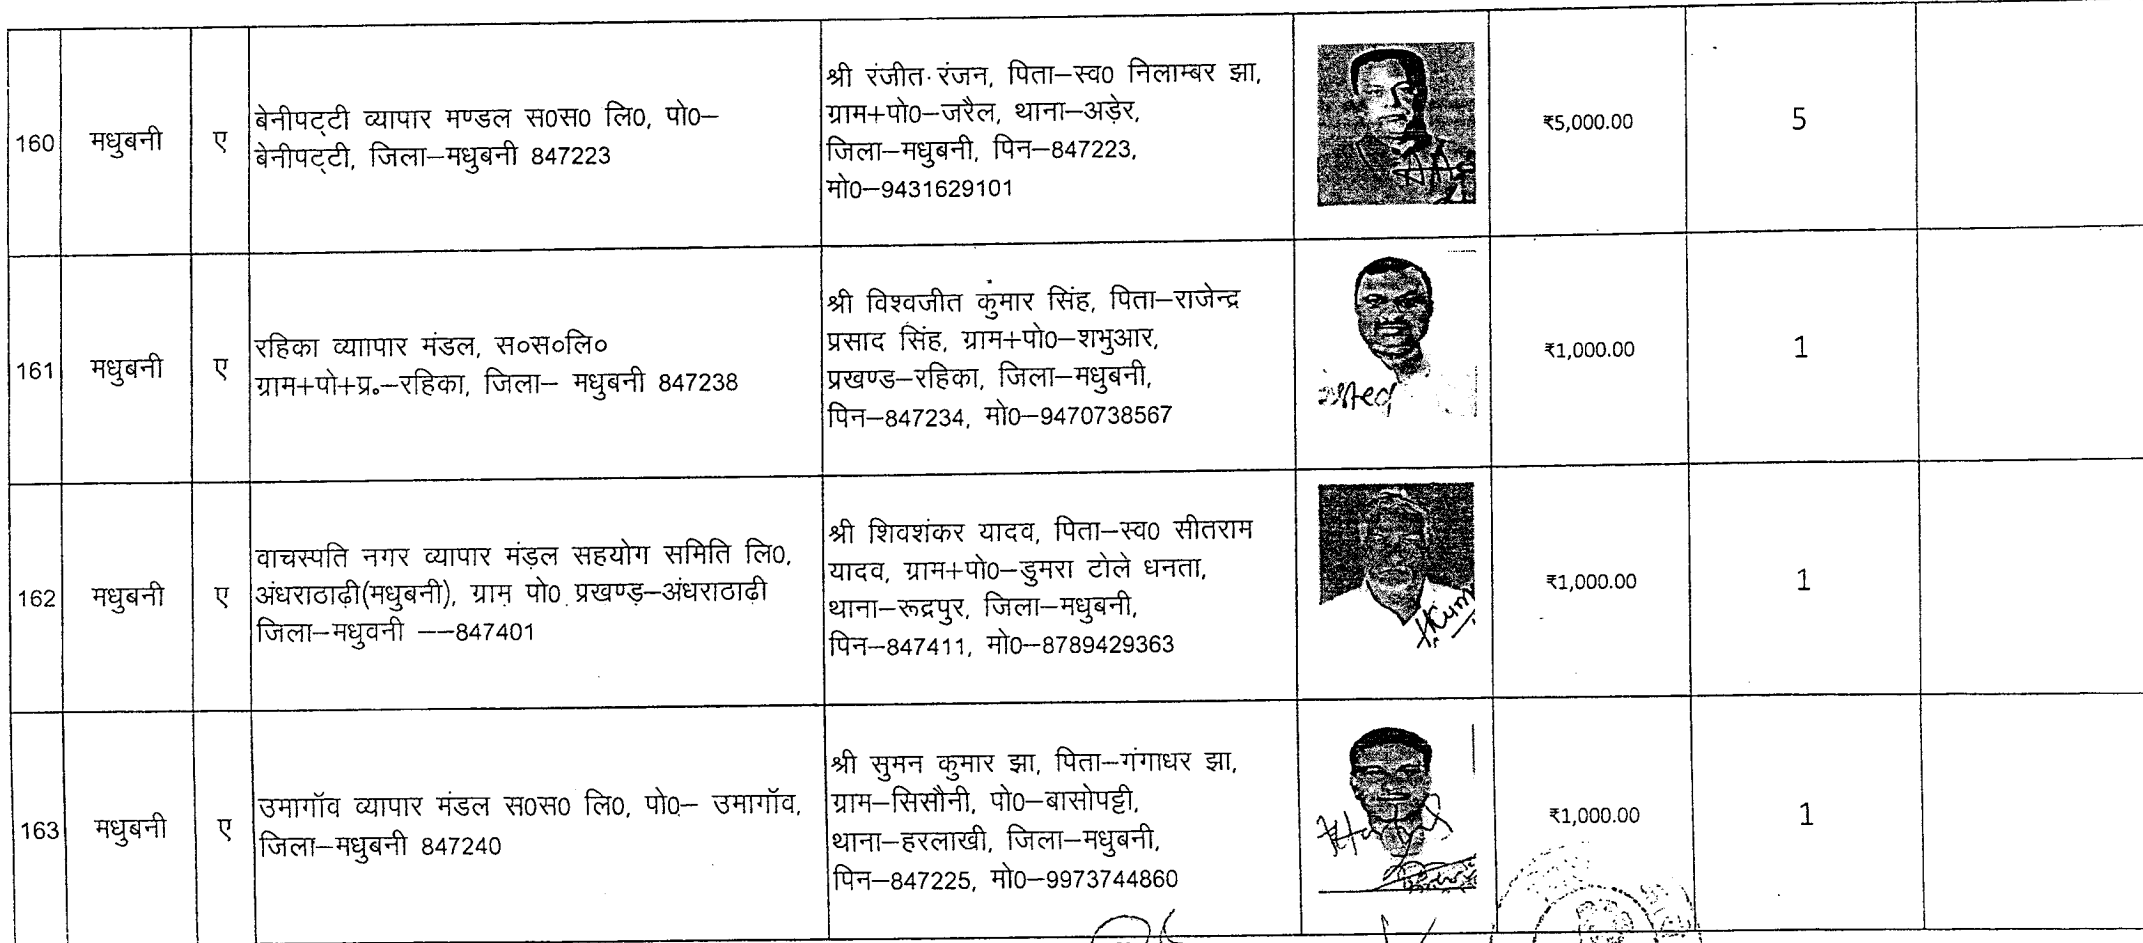 160
मधुबनी
ए
बेनीपट्टी व्यापार मण्डल स0स0 लि0, पो0–
बेनीपट्टी, जिला–मधुबनी 847223
श्री रंजीत रंजन, पिता–स्व0 निलाम्बर झा,
ग्राम+पो0–जरैल, थाना–अड़ेर,
जिला–मधुबनी, पिन–847223,
मो0–9431629101
₹5,000.00
5
161
मधुबनी
ए
रहिका व्याापार मंडल, स०स०लि०
ग्राम+पो+प्र०–रहिका, जिला– मधुबनी 847238
श्री विश्वजीत कुमार सिंह, पिता–राजेन्द्र
प्रसाद सिंह, ग्राम+पो0–शभुआर,
प्रखण्ड–रहिका, जिला–मधुबनी,
पिन–847234, मो0–9470738567
₹1,000.00
1
162
मधुबनी
ए
वाचस्पति नगर व्यापार मंड़ल सहयोग समिति लि0,
अंधराठाढ़ी(मधुबनी), ग्राम पो0 प्रखण्ड़–अंधराठाढ़ी
जिला–मधुवनी ––847401
श्री शिवशंकर यादव, पिता–स्व0 सीतराम
यादव, ग्राम+पो0–डुमरा टोले धनता,
थाना–रूद्रपुर, जिला–मधुबनी,
पिन–847411, मो0–8789429363
₹1,000.00
1
163
मधुबनी
ए
उमागॉव व्यापार मंडल स0स0 लि0, पो0– उमागॉव,
जिला–मधुबनी 847240
श्री सुमन कुमार झा, पिता–गंगाधर झा,
ग्राम–सिसौनी, पो0–बासोपट्टी,
थाना–हरलाखी, जिला–मधुबनी,
पिन–847225, मो0–9973744860
₹1,000.00
1